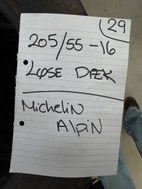 29
205/55-16
LOOSE DEEK
Michelin
Alpin